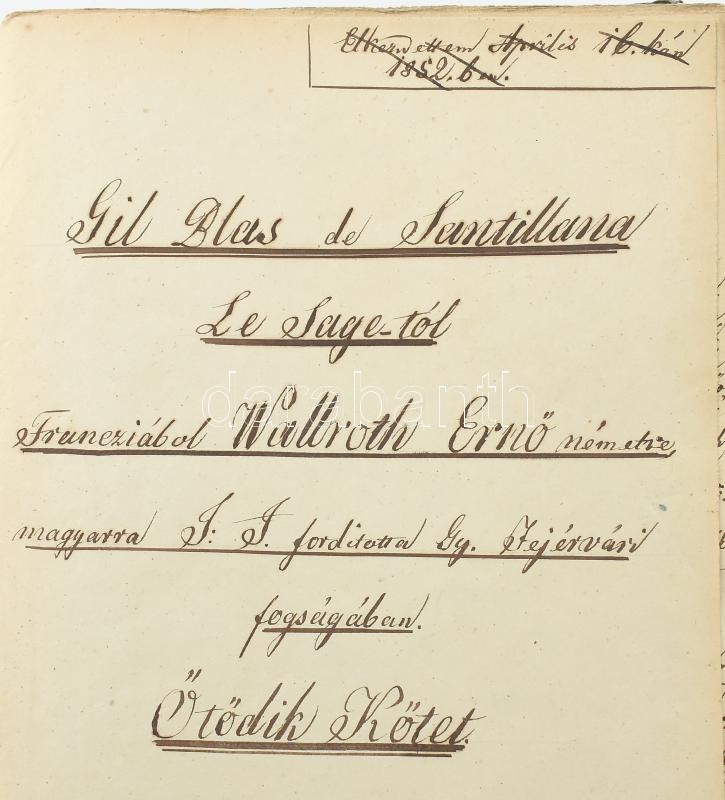 Elkezdettem Április 16.kán
1852.ben.
Gil Blas de Santillana
Le Sage-tól
darabanth
Francziából Wallroth Ernő németre,
magyarra J: J. fordította Gy. Fejérvári
fogságában.
Ötödik Kötet.